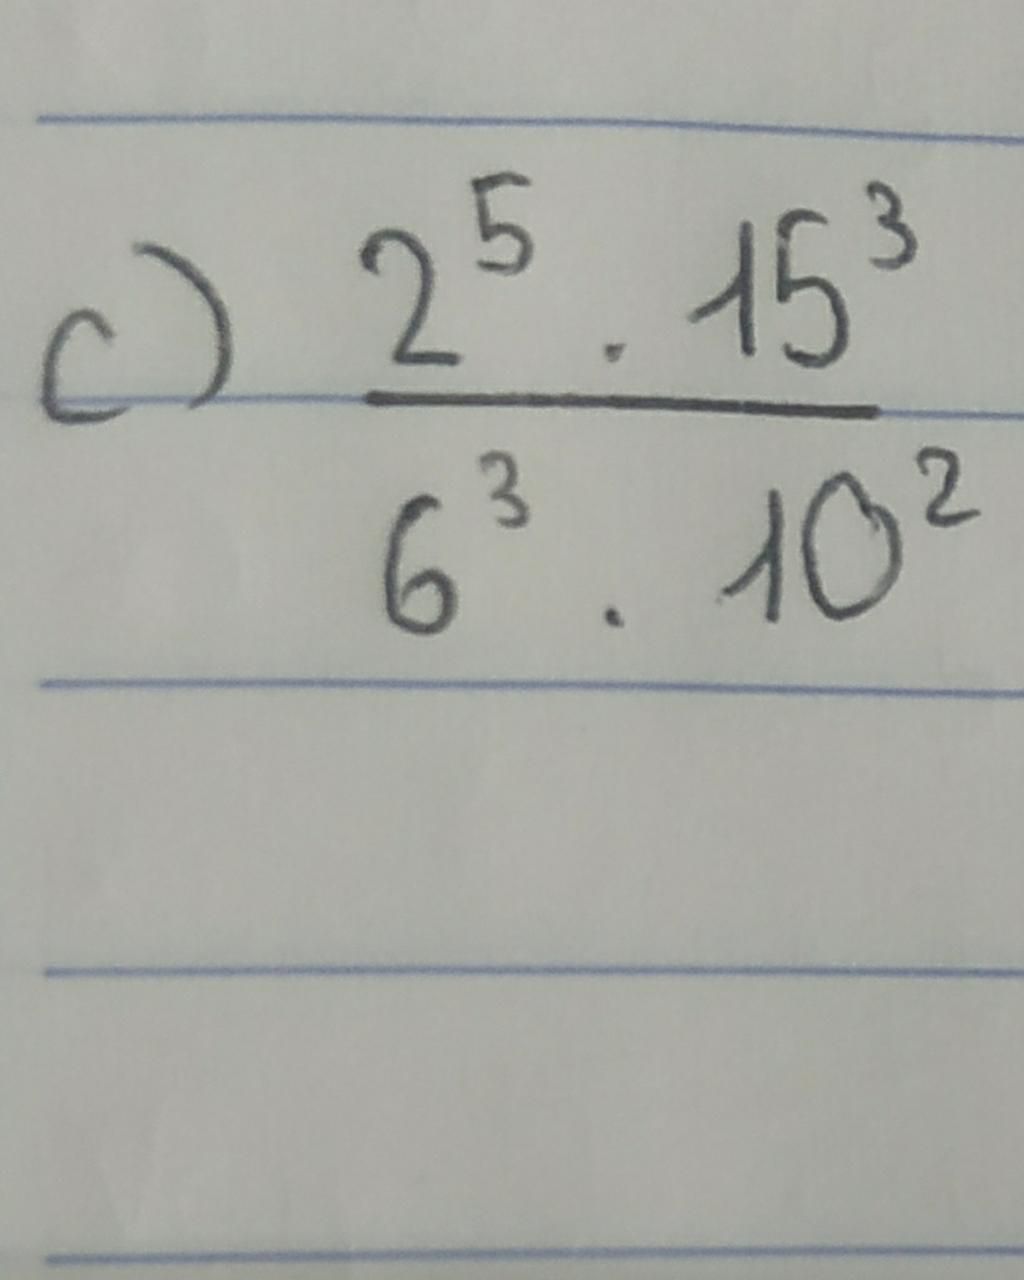 c) 2⁵ . 15³
6³ . 10²